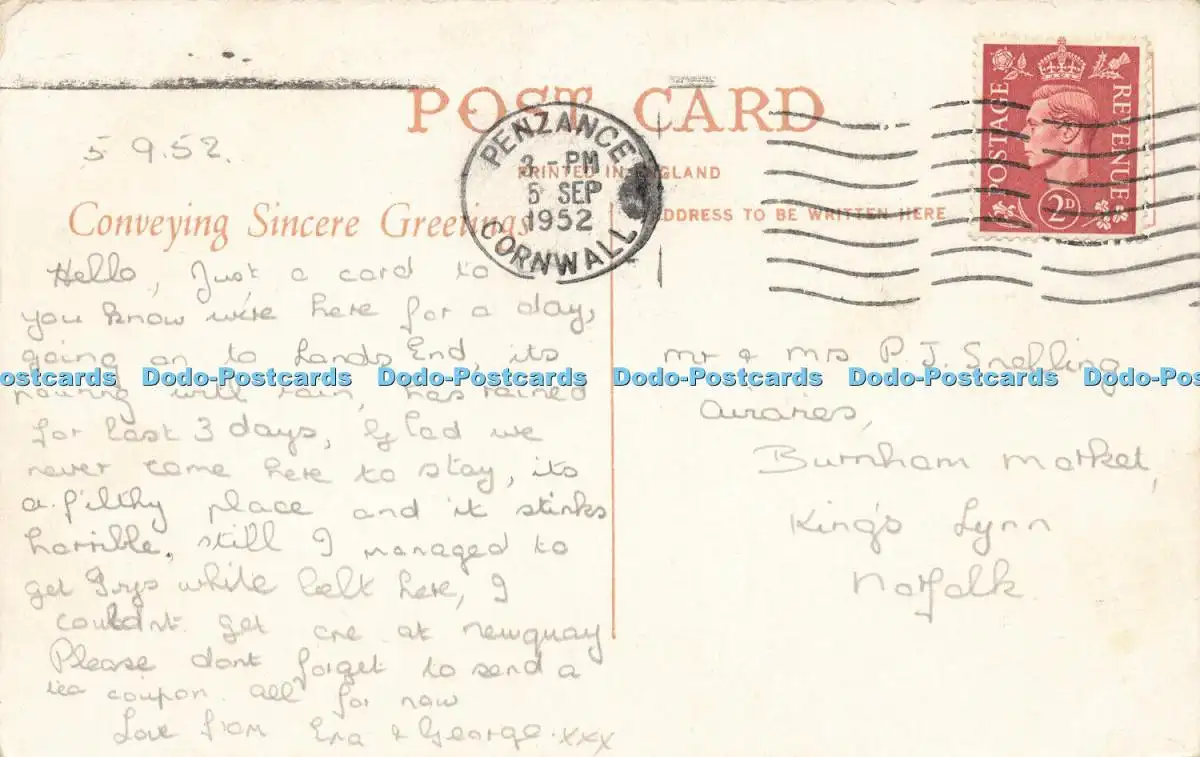 POST CARD
PENZANCE
3 - PM
5 SEP
1952
CORNWALL
PRINTED IN ENGLAND
ADDRESS TO BE WRITTEN HERE
POSTAGE
REVENUE
2D
5 9.52.
Conveying Sincere Greetings
Hello, Just a card to
you know we're here for a day,
going on to Lands End, its
pouring with rain, has rained
for last 3 days, Glad we
never came here to stay, its
a filthy place and it stinks
horrible, still I managed to
get white belt here, I
couldnt get one at Newquay
Please dont forget to send a
tea coupon. all for now
Love from Ena & George. xxx
Mr & Mrs P. J. Snelling
Burnham Market,
King's Lynn
Norfolk.
Dodo-Postcards Dodo-Postcards Dodo-Postcards Dodo-Postcards Dodo-Postcards